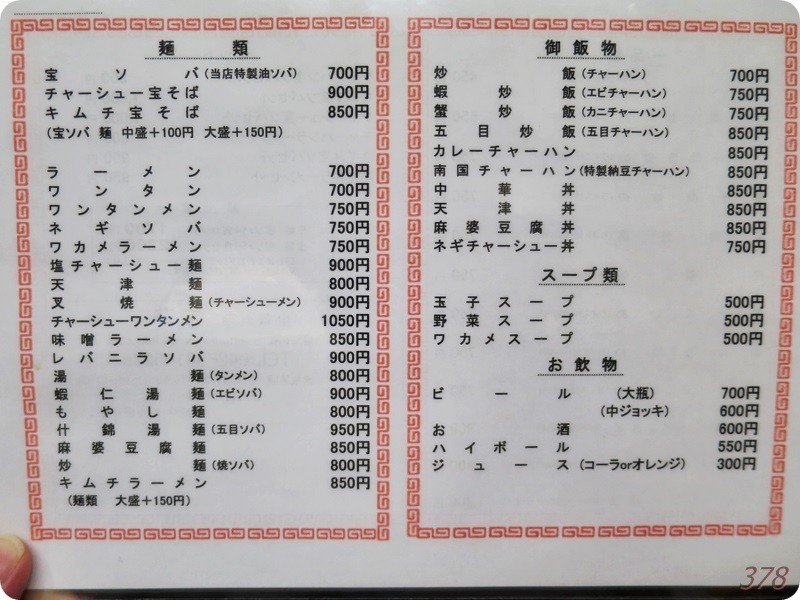 麺類
宝ソバ(当店特製油ソバ) 700円
チャーシュー宝そば 900円
キムチ宝そば 850円
(宝ソバ 麺 中盛+100円 大盛+150円)
ラーメン 700円
ワンタン 700円
ワンタンメン 750円
ネギソバ 750円
ワカメラーメン 750円
塩チャーシュー麺 900円
天津麺 800円
叉焼麺(チャーシューメン) 900円
チャーシューワンタンメン 1050円
味噌ラーメン 850円
レバニラソバ 900円
湯麺(タンメン) 800円
蝦仁湯麺(エビソバ) 900円
もやし麺 800円
什錦湯麺(五目ソバ) 950円
麻婆豆腐麺 850円
炒麺(焼ソバ) 800円
キムチラーメン 850円
(麺類 大盛+150円)
御飯物
炒飯(チャーハン) 700円
蝦炒飯(エビチャーハン) 750円
蟹炒飯(カニチャーハン) 750円
五目炒飯(五目チャーハン) 850円
カレーチャーハン 850円
南国チャーハン(特製納豆チャーハン) 850円
中華丼 850円
天津丼 850円
麻婆豆腐丼 850円
ネギチャーシュー丼 750円
スープ類
玉子スープ 500円
野菜スープ 500円
ワカメスープ 500円
お飲物
ビール (大瓶) 700円
(中ジョッキ) 600円
お酒 600円
ハイボール 550円
ジュース(コーラorオレンジ) 300円
378